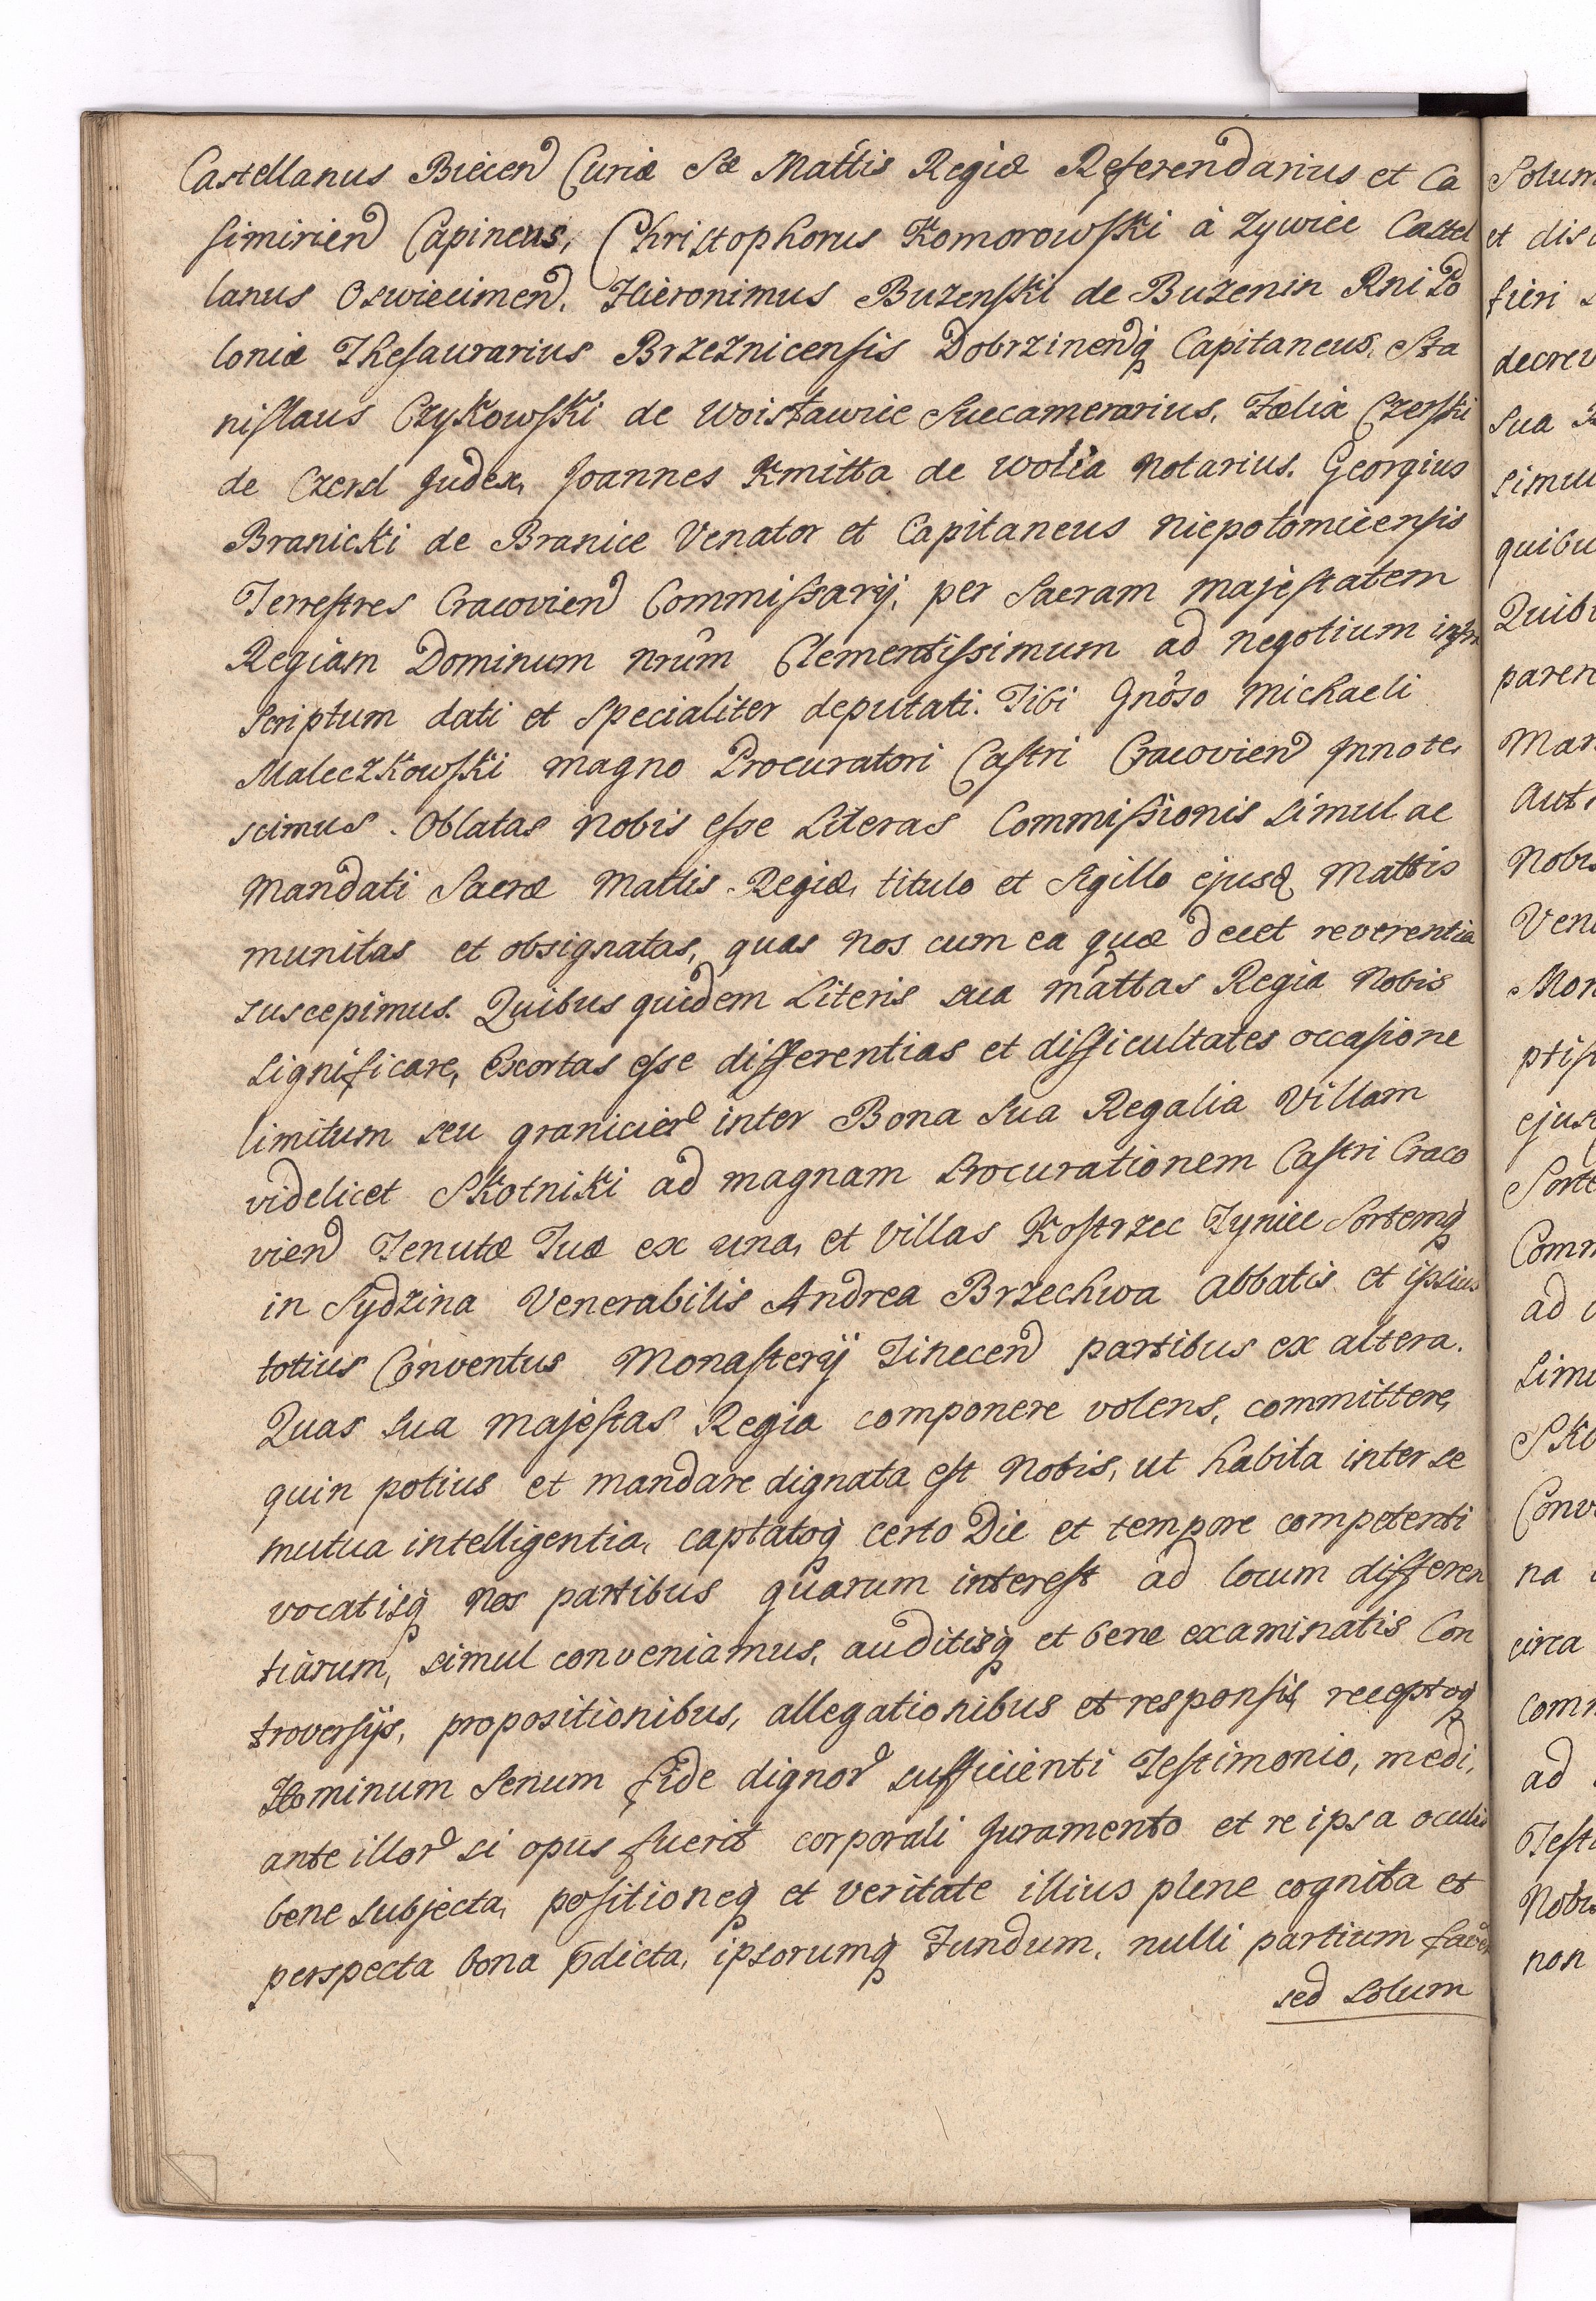 Castellanus Biecen Curiæ Sæ Mattis Regiæ Referendarius et Ca
simirien Capineus, Christophorus Komorowski à Zywiec Castel
lanus Oswiecimen. Hieronimus Buzenski de Buzenin Rni Po
loniæ Thesaurarius Brzeznicensis Dobrzinenq Capitaneus, Sta
nislaus Czykowski de Woisławice Succamerarius, Fælix Czerski
de Czersl Judex, Joannes Kmitta de Wolia Notarius. Georgius
Branicki de Branice Venator et Capitaneus Niepołomicensis
Terrestres Cracovien Commissarij, per Sacram Majestatem
Regiam Dominum nrum Clementissimum ad negotium infra
scriptum dati et specialiter deputati. Tibi Gnoso Michaeli
Maleczkowski magno Procuratori Castri Cracovien Innote,
scimus. Oblatas nobis esse Literas Commissionis simul ac
Mandati Sacræ Mattis Regiæ, titulo et Sigillo ejusd Mattis
munitas et obsignatas, quas nos cum ea quæ decet reverentia
suscepimus. Quibus quidem Literis sua Mattas Regia Nobis
significare, Exortas esse differentias et difficultates occasione
limitum seu granicier inter Bona sua Regalia Villam
videlicet Skotniki ad magnam Procurationem Castri Craco
vien Tenutæ Tuæ ex una, et Villas Kostrzec Tyniec Sortemq
in Sydzina Venerabilis Andrea Brzechwa Abbatis et ipsius
totius Conventus Monasterij Tinecen partibus ex altera.
Quas sua Majestas Regia componere volens, committere,
quin potius et mandare dignata est Nobis, ut habita inter se
mutua intelligentia, captatoq certo Die et tempore competenti
vocatisq nos partibus quarum interest ad locum differen
tiarum, simul conveniamus, auditisq et bene examinatis Con
troversijs, propositionibus, allegationibus et responsis, receptoq
Hominum Senum fide dignor sufficienti Testimonio, medi,
ante illor si opus fuerit corporali Juramento et re ipsa oculis
bene subjecta, positioneq et veritate illius plene cognita et
perspecta bona pdicta, ipsorumq Fundum, nulli partium faven
sed solum